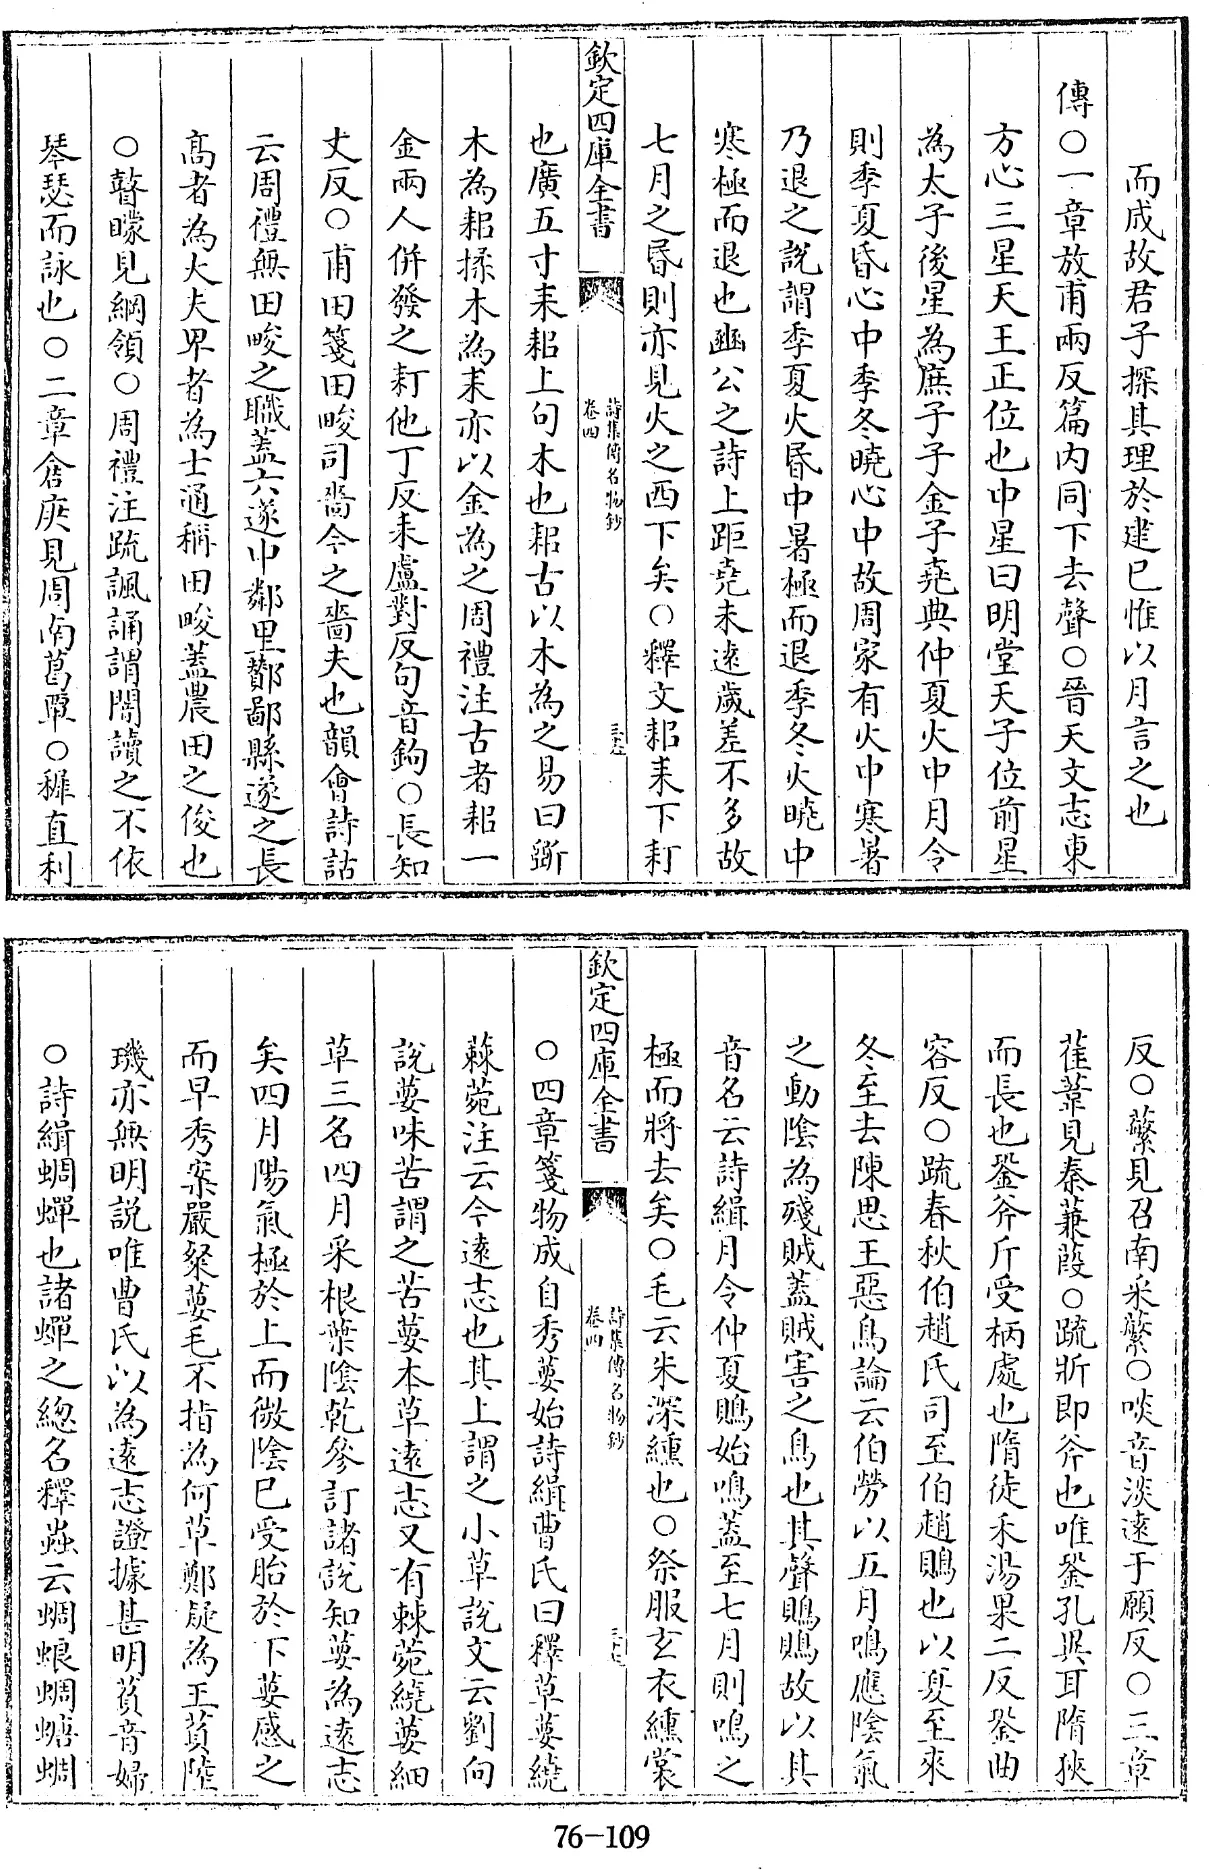 而成故君子探其理於建巳惟以月言之也
傳○一章放甫兩反篇内同下去聲○晉天文志東
方心三星天王正位也中星曰明堂天子位前星
為太子後星為庶子子金子堯典仲夏火中月令
則季夏昏心中季冬曉心中故周家有火中寒暑
乃退之說謂季夏火昬中暑極而退季冬火曉中
寒極而退也豳公之詩上距堯未逺歲差不多故
七月之昬則亦見火之西下矣○釋文耜耒下耓
欽定四庫全書
詩集傳名物鈔
卷四
也廣五寸耒耜上句木也耜古以木為之易曰斵
木為耜揉木為耒亦以金為之周禮注古者耜一
金兩人併發之耓他丁反耒盧對反句音鉤○長知
丈反○甫田箋田畯司嗇今之嗇夫也韻會詩詁
云周禮無田畯之職蓋六遂中鄰里酇鄙縣遂之長
髙者為大夫卑者為士通稱田畯蓋農田之俊也
○瞽矇見綱領○周禮注疏諷誦謂闇讀之不依
琴瑟而詠也○二章倉庚見周南葛覃○穉直利
反○蘩見召南采蘩○啖音淡逺于願反○三章
萑葦見秦蒹葭○疏斨即斧也唯銎孔異耳隋狹
而長也銎斧斤受柄處也隋徒禾湯果二反銎曲
容反○疏春秋伯趙氏司至伯趙鵙也以夏至來
冬至去陳思王惡鳥論云伯勞以五月鳴應陰氣
之動陰為殘賊蓋賊害之鳥也其聲鵙鵙故以其
音名云詩緝月令仲夏鵙始鳴蓋至七月則鳴之
極而將去矣○毛云朱深纁也○祭服玄衣纁裳
欽定四庫全書
詩集傳名物鈔
卷四
○四章箋物成自秀葽始詩緝曹氏曰釋草葽繞
蕀菀注云今逺志也其上謂之小草說文云劉向
說葽味苦謂之苦葽本草逺志又有棘菀繞葽細
草三名四月采根葉陰乾參訂諸說知葽為逺志
矣四月陽氣極於上而微陰巳受胎於下葽感之
而早秀案嚴粲葽毛不指為何草鄭疑為王萯陸
璣亦無明説唯曹氏以為逺志證據甚明萯音婦
○詩緝蜩蟬也諸蟬之總名釋蟲云蜩蜋蜩螗蜩
76-109